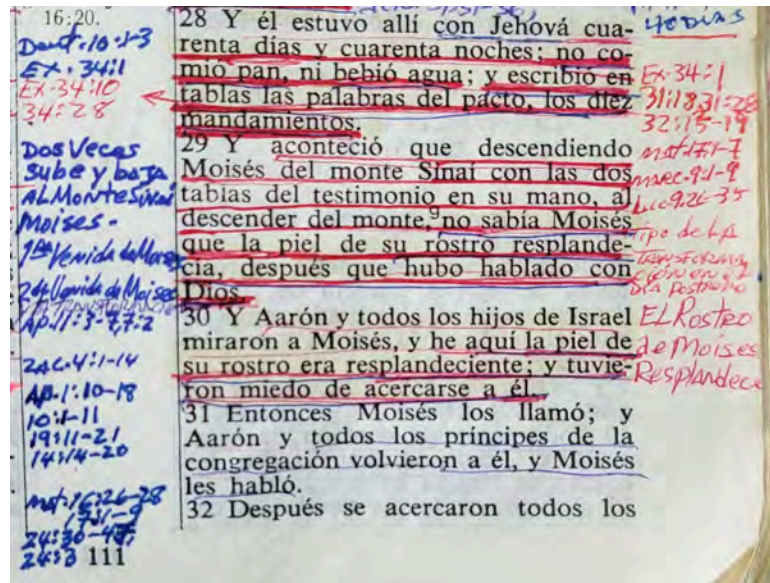 16:20.
Deut. 10:1-3
EX. 34:1
EX-34:10
34:28
Dos Veces
sube y baja
AL Monte Sinaí
Moises-
1ra Venida de Moises
2da Venida de Moises
AP. 11:3-7, 7:2
ZAC. 4:1-14
AP. 1:10-18
10:1-11
19:11-21
14:14-20
mat. 16:26-28
17:1-9
24:3
111
28 Y él estuvo allí con Jehová cua-
renta días y cuarenta noches; no co-
mió pan, ni bebió agua; y escribió en
tablas las palabras del pacto, los diez
mandamientos.
29 Y aconteció que descendiendo
Moisés del monte Sinaí con las dos
tablas del testimonio en su mano, al
descender del monte, 9no sabía Moisés
que la piel de su rostro resplande-
cía, después que hubo hablado con
Dios.
30 Y Aarón y todos los hijos de Israel
miraron a Moisés, y he aquí la piel de
su rostro era resplandeciente; y tuvie-
ron miedo de acercarse a él.
31 Entonces Moisés los llamó; y
Aarón y todos los príncipes de la
congregación volvieron a él, y Moisés
les habló.
32 Después se acercaron todos los
40 DIAS
EX-34:1
31:18, 31:28
32:15-19
mat. 17:1-7
marc. 9:1-9
Luc. 9:26-35
Tipo de LA
TRANSFORMA
CIÓN EN EL
DIA POSTRERO
EL Rostro
de Moises
Resplandece